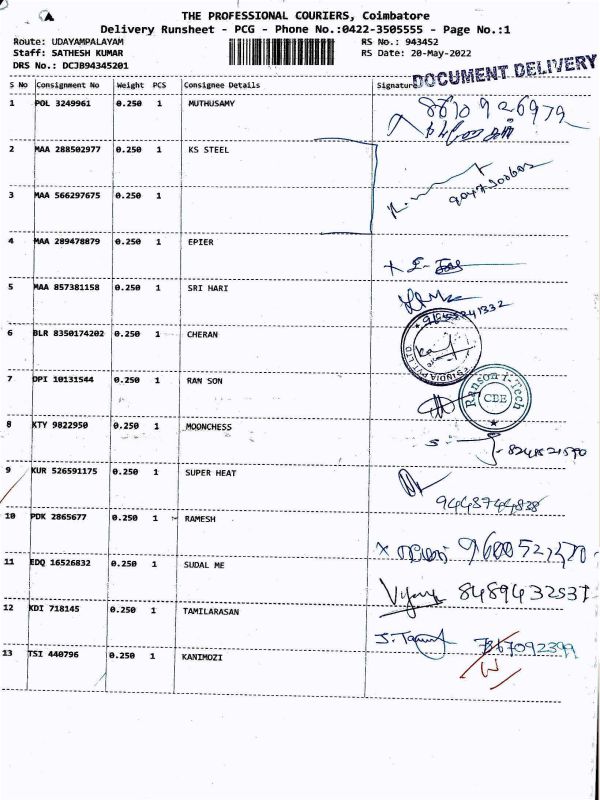 THE PROFESSIONAL COURIERS, Coimbatore
Delivery Runsheet - PCG - Phone No.:0422-3505555 - Page No.:1
Route: UDAYAMPALAYAM RS No.: 943452
Staff: SATHESH KUMAR RS Date: 20-May-2022
DRS No.: DCJB94345201
DOCUMENT DELIVERY
S No Consignment No Weight PCS Consignee Details Signature
1 POL 3249961 0.250 1 MUTHUSAMY
2 MAA 288502977 0.250 1 KS STEEL
3 MAA 566297675 0.250 1
4 MAA 289478879 0.250 1 EPIER
5 MAA 857381158 0.250 1 SRI HARI
6 BLR 8350174202 0.250 1 CHERAN
INDIA PVT. LTD
7 DPI 10131544 0.250 1 RAN SON
Ranson i-Tech
CBE
8 KTY 9822950 0.250 1 MOONCHESS
9 KUR 526591175 0.250 1 SUPER HEAT
9448744838
10 PDK 2865677 0.250 1 RAMESH
11 EDQ 16526832 0.250 1 SUDAL ME
8489432537
12 KDI 718145 0.250 1 TAMILARASAN
7867092399
13 TSI 440796 0.250 1 KANIMOZI